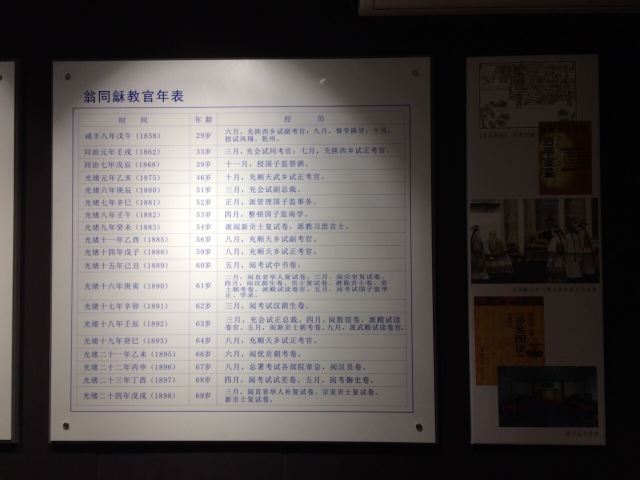 翁同龢教官年表
时 间 年龄 经 历
咸丰八年戊午（1858） 29岁 六月，充陕西乡试副考官；九月，督学陕甘；十月，
按试凤翔、乾州。
同治元年壬戌（1862） 33岁 三月，充会试同考官；七月，充陕西乡试正考官。
同治七年戊辰（1868） 39岁 十一月，授国子监祭酒。
光绪元年乙亥（1875） 46岁 十月，充顺天武乡试正考官。
光绪六年庚辰（1880） 51岁 三月，充会试副总裁。
光绪七年辛巳（1881） 52岁 正月，派管理国子监事务。
光绪八年壬午（1882） 53岁 四月，整顿国子监南学。
光绪九年癸未（1883） 54岁 派阅新贡士复试卷，派教习庶吉士。
光绪十一年乙酉（1885） 56岁 八月，充顺天乡试副考官。
光绪十四年戊子（1888） 59岁 八月，充顺天乡试正考官。
光绪十五年己丑（1889） 60岁 五月，阅考试中书卷。
光绪十六年庚寅（1890） 61岁 二月，阅直省举人复试卷。三月，阅宗室复试卷。
四月，阅汉荫生卷、贡士复试卷、磨勘贡士卷、贡
士朝考卷，派殿试读卷官。五月，阅考试国子监学
正、学录。
光绪十七年辛卯（1891） 62岁 三月，阅考试汉荫生卷。
光绪十八年壬辰（1892） 63岁 三月，充会试正总裁。四月，阅散馆卷，派殿试读
卷官。五月，阅新贡士朝考卷。九月，派武殿试读卷官。
光绪十九年癸巳（1893） 64岁 八月，充顺天乡试正考官。
光绪二十一年乙未（1895） 66岁 六月，阅优贡朝考卷。
光绪二十二年丙申（1896） 67岁 八月，总署考试各部院章京，阅汉员卷。
光绪二十三年丁酉（1897） 68岁 四月，阅考试试差卷。五月，阅考御史卷。
光绪二十四年戊戌（1898） 69岁 三月，阅直省举人补复试卷、宗室贡士复试卷、
新贡士复试卷。
治平宝鉴
帝鉴图说